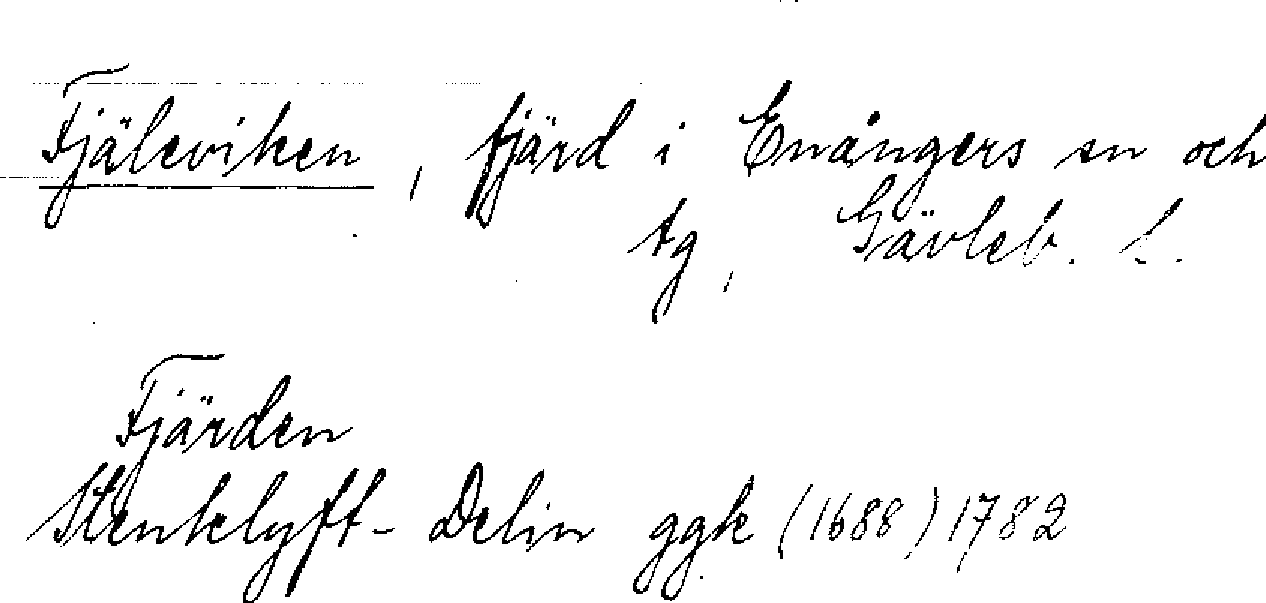 Fjäleviken, fjärd i Enångers sn och
tg, Gävleb. l.
Fjärden
Stenklyft-Delin ggk (1688) 1782